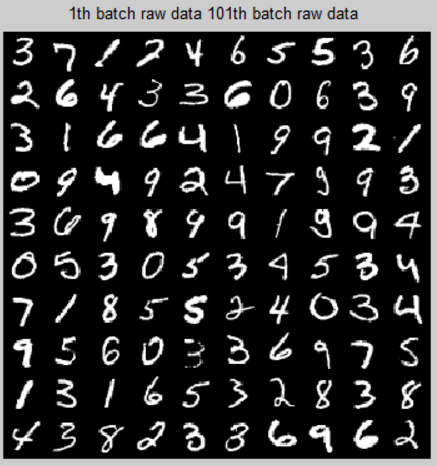 1th batch raw data 101th batch raw data
3 7 1 2 4 6 5 5 3 6
2 6 4 3 3 6 0 6 3 9
3 1 6 6 4 1 9 9 2 1
0 9 4 9 2 4 7 9 9 3
3 6 9 8 9 9 1 9 9 4
0 5 3 0 5 3 4 5 3 4
7 1 8 5 5 2 4 0 3 4
9 5 6 0 3 3 6 9 7 5
1 3 1 6 5 3 2 8 3 8
4 3 8 2 3 3 6 9 6 2